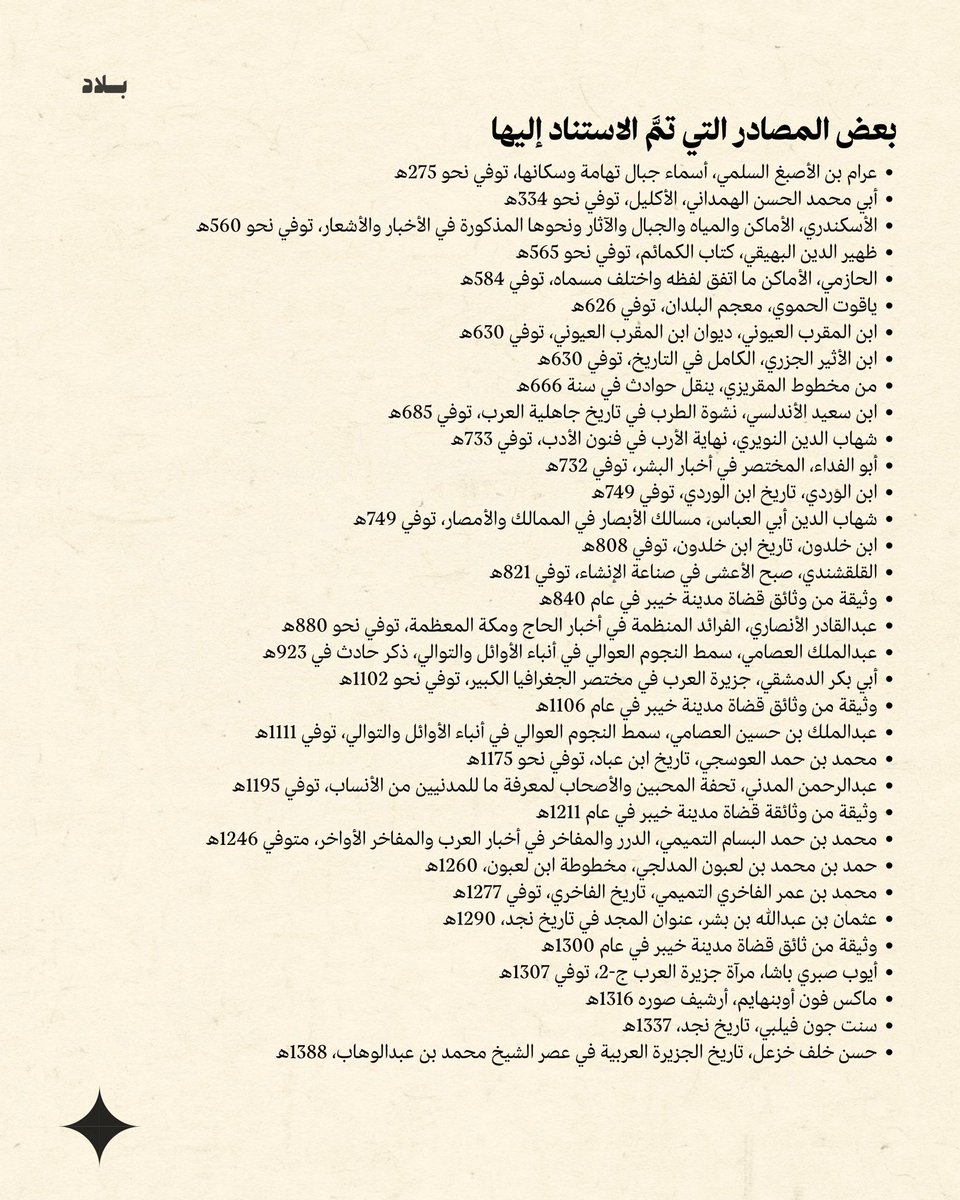 بلاد
بعض المصادر التي تمَّ الاستناد إليها
• عرام بن الأصبغ السلمي، أسماء جبال تهامة وسكانها، توفي نحو 275هـ
• أبي محمد الحسن الهمداني، الأكليل، توفي نحو 334هـ
• الأسكندري، الأماكن والمياه والجبال والآثار ونحوها المذكورة في الأخبار والأشعار، توفي نحو 560هـ
• ظهير الدين البهيقي، كتاب الكمائم، توفي نحو 565هـ
• الحازمي، الأماكن ما اتفق لفظه واختلف مسماه، توفي 584هـ
• ياقوت الحموي، معجم البلدان، توفي 626هـ
• ابن المقرب العيوني، ديوان ابن المقرب العيوني، توفي 630هـ
• ابن الأثير الجزري، الكامل في التاريخ، توفي 630هـ
• من مخطوط المقريزي، ينقل حوادث في سنة 666هـ
• ابن سعيد الأندلسي، نشوة الطرب في تاريخ جاهلية العرب، توفي 685هـ
• شهاب الدين النويري، نهاية الأرب في فنون الأدب، توفي 733هـ
• أبو الفداء، المختصر في أخبار البشر، توفي 732هـ
• ابن الوردي، تاريخ ابن الوردي، توفي 749هـ
• شهاب الدين أبي العباس، مسالك الأبصار في الممالك والأمصار، توفي 749هـ
• ابن خلدون، تاريخ ابن خلدون، توفي 808هـ
• القلقشندي، صبح الأعشى في صناعة الإنشاء، توفي 821هـ
• وثيقة من وثائق قضاة مدينة خيبر في عام 840هـ
• عبدالقادر الأنصاري، الفرائد المنظمة في أخبار الحاج ومكة المعظمة، توفي نحو 880هـ
• عبدالملك العصامي، سمط النجوم العوالي في أنباء الأوائل والتوالي، ذكر حادث في 923هـ
• أبي بكر الدمشقي، جزيرة العرب في مختصر الجغرافيا الكبير، توفي نحو 1102هـ
• وثيقة من وثائق قضاة مدينة خيبر في عام 1106هـ
• عبدالملك بن حسين العصامي، سمط النجوم العوالي في أنباء الأوائل والتوالي، توفي 1111هـ
• محمد بن حمد العوسجي، تاريخ ابن عباد، توفي نحو 1175هـ
• عبدالرحمن المدني، تحفة المحبين والأصحاب لمعرفة ما للمدنيين من الأنساب، توفي 1195هـ
• وثيقة من وثائقة قضاة مدينة خيبر في عام 1211هـ
• محمد بن حمد البسام التميمي، الدرر والمفاخر في أخبار العرب والمفاخر الأواخر، متوفي 1246هـ
• حمد بن محمد بن لعبون المدلجي، مخطوطة ابن لعبون، 1260هـ
• محمد بن عمر الفاخري التميمي، تاريخ الفاخري، توفي 1277هـ
• عثمان بن عبدالله بن بشر، عنوان المجد في تاريخ نجد، 1290هـ
• وثيقة من ثائق قضاة مدينة خيبر في عام 1300هـ
• أيوب صبري باشا، مرآة جزيرة العرب ج-2، توفي 1307هـ
• ماكس فون أوبنهايم، أرشيف صوره 1316هـ
• سنت جون فيلبي، تاريخ نجد، 1337هـ
• حسن خلف خزعل، تاريخ الجزيرة العربية في عصر الشيخ محمد بن عبدالوهاب، 1388هـ